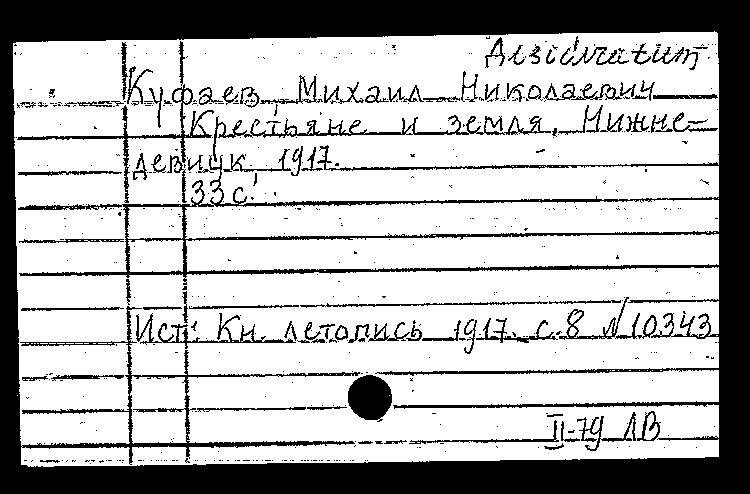 Desideratum
Куфаев, Михаил Николаевич
Крестьяне и земля, Нижне-
девицк, 1917.
33 с.
Ист: Кн. летопись 1917. с.8 №10343
II-79 ЛВ